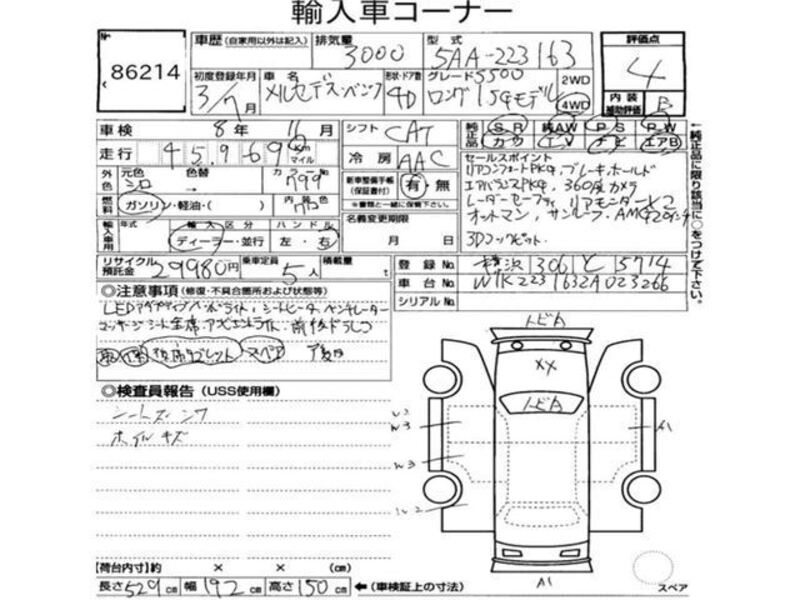 輸入車コーナー
No 86214
車歴 (自家用以外は記入) 排気量 3000 型式 5AA-223163 評価点 4
初度登録年月 3/7月 車名 メルセデス・ベンツ 形状・ドア数 4D グレード S500 ロング ISGモデル 2WD 4WD 内装補助評価 B
車検 8年 11月 シフト CAT 純正品 S R 純AW P S P W
カワ T V ナビ エアB
走行 45,969 Km マイル 冷房 AAC
セールスポイント
リアコンフォートPKG, ブレーキホールド
外色 元色 シロ 色替 → カラーNo 799 新車整備手帳(保証書付) 有・無
※書類と一緒に保管して下さい。
エアバランスPKG, 360度カメラ
燃料 ガソリン・軽油・( ) 内装色
レーダーセーフティ リアモニター×2
名義変更期限 月 日
オットマン, サンルーフ, AMG20インチ
輸入車用 年式 輸入区分 ディーラー・並行 ハンドル 左・右
3Dコックピット.
←純正品に限り該当に○をつけて下さい。
リサイクル預託金 29980円 乗車定員 5人 積載量 t
登録No. 横浜 306 と 5714
車台No. W1K2231632A023266
シリアルNo.
◎注意事項 (修復・不具合箇所および状態等)
LEDアダプティブハイビームライト, シートヒーター, ベンチレーター
マッサージシート全席, アンビエントライト, 前後ドラレコ
取 保 後席タブレット スペア
◎検査員報告 (USS使用欄)
シートスレ シワ
ホイルキズ
トビA
XX
トビA
A1
A1
スペア
【荷台内寸】約 × × (cm)
長さ 529cm 幅 192cm 高さ 150cm ←(車検証上の寸法)